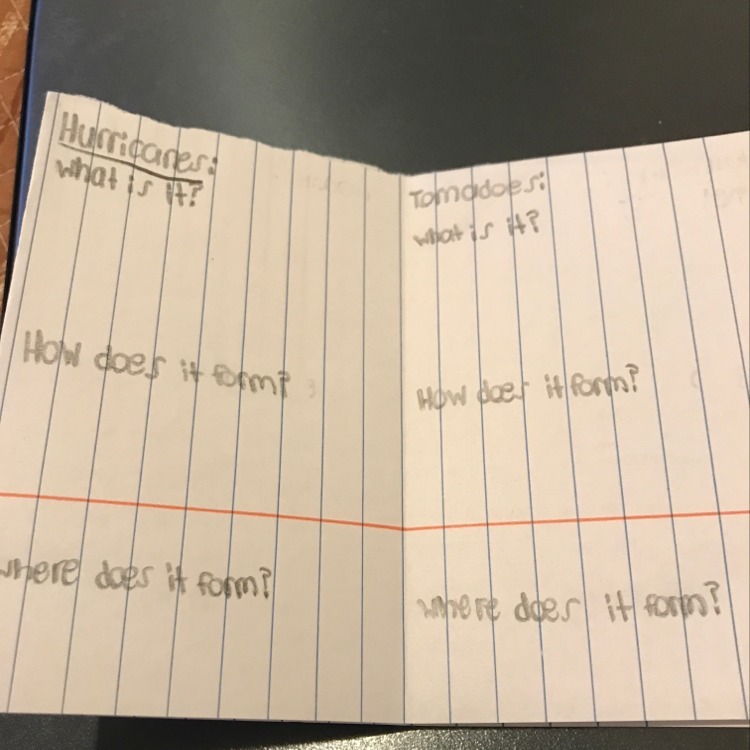 Hurricanes:
what is it?
How does it form?
where does it form?
Tornadoes:
what is it?
How does it form?
where does it form?